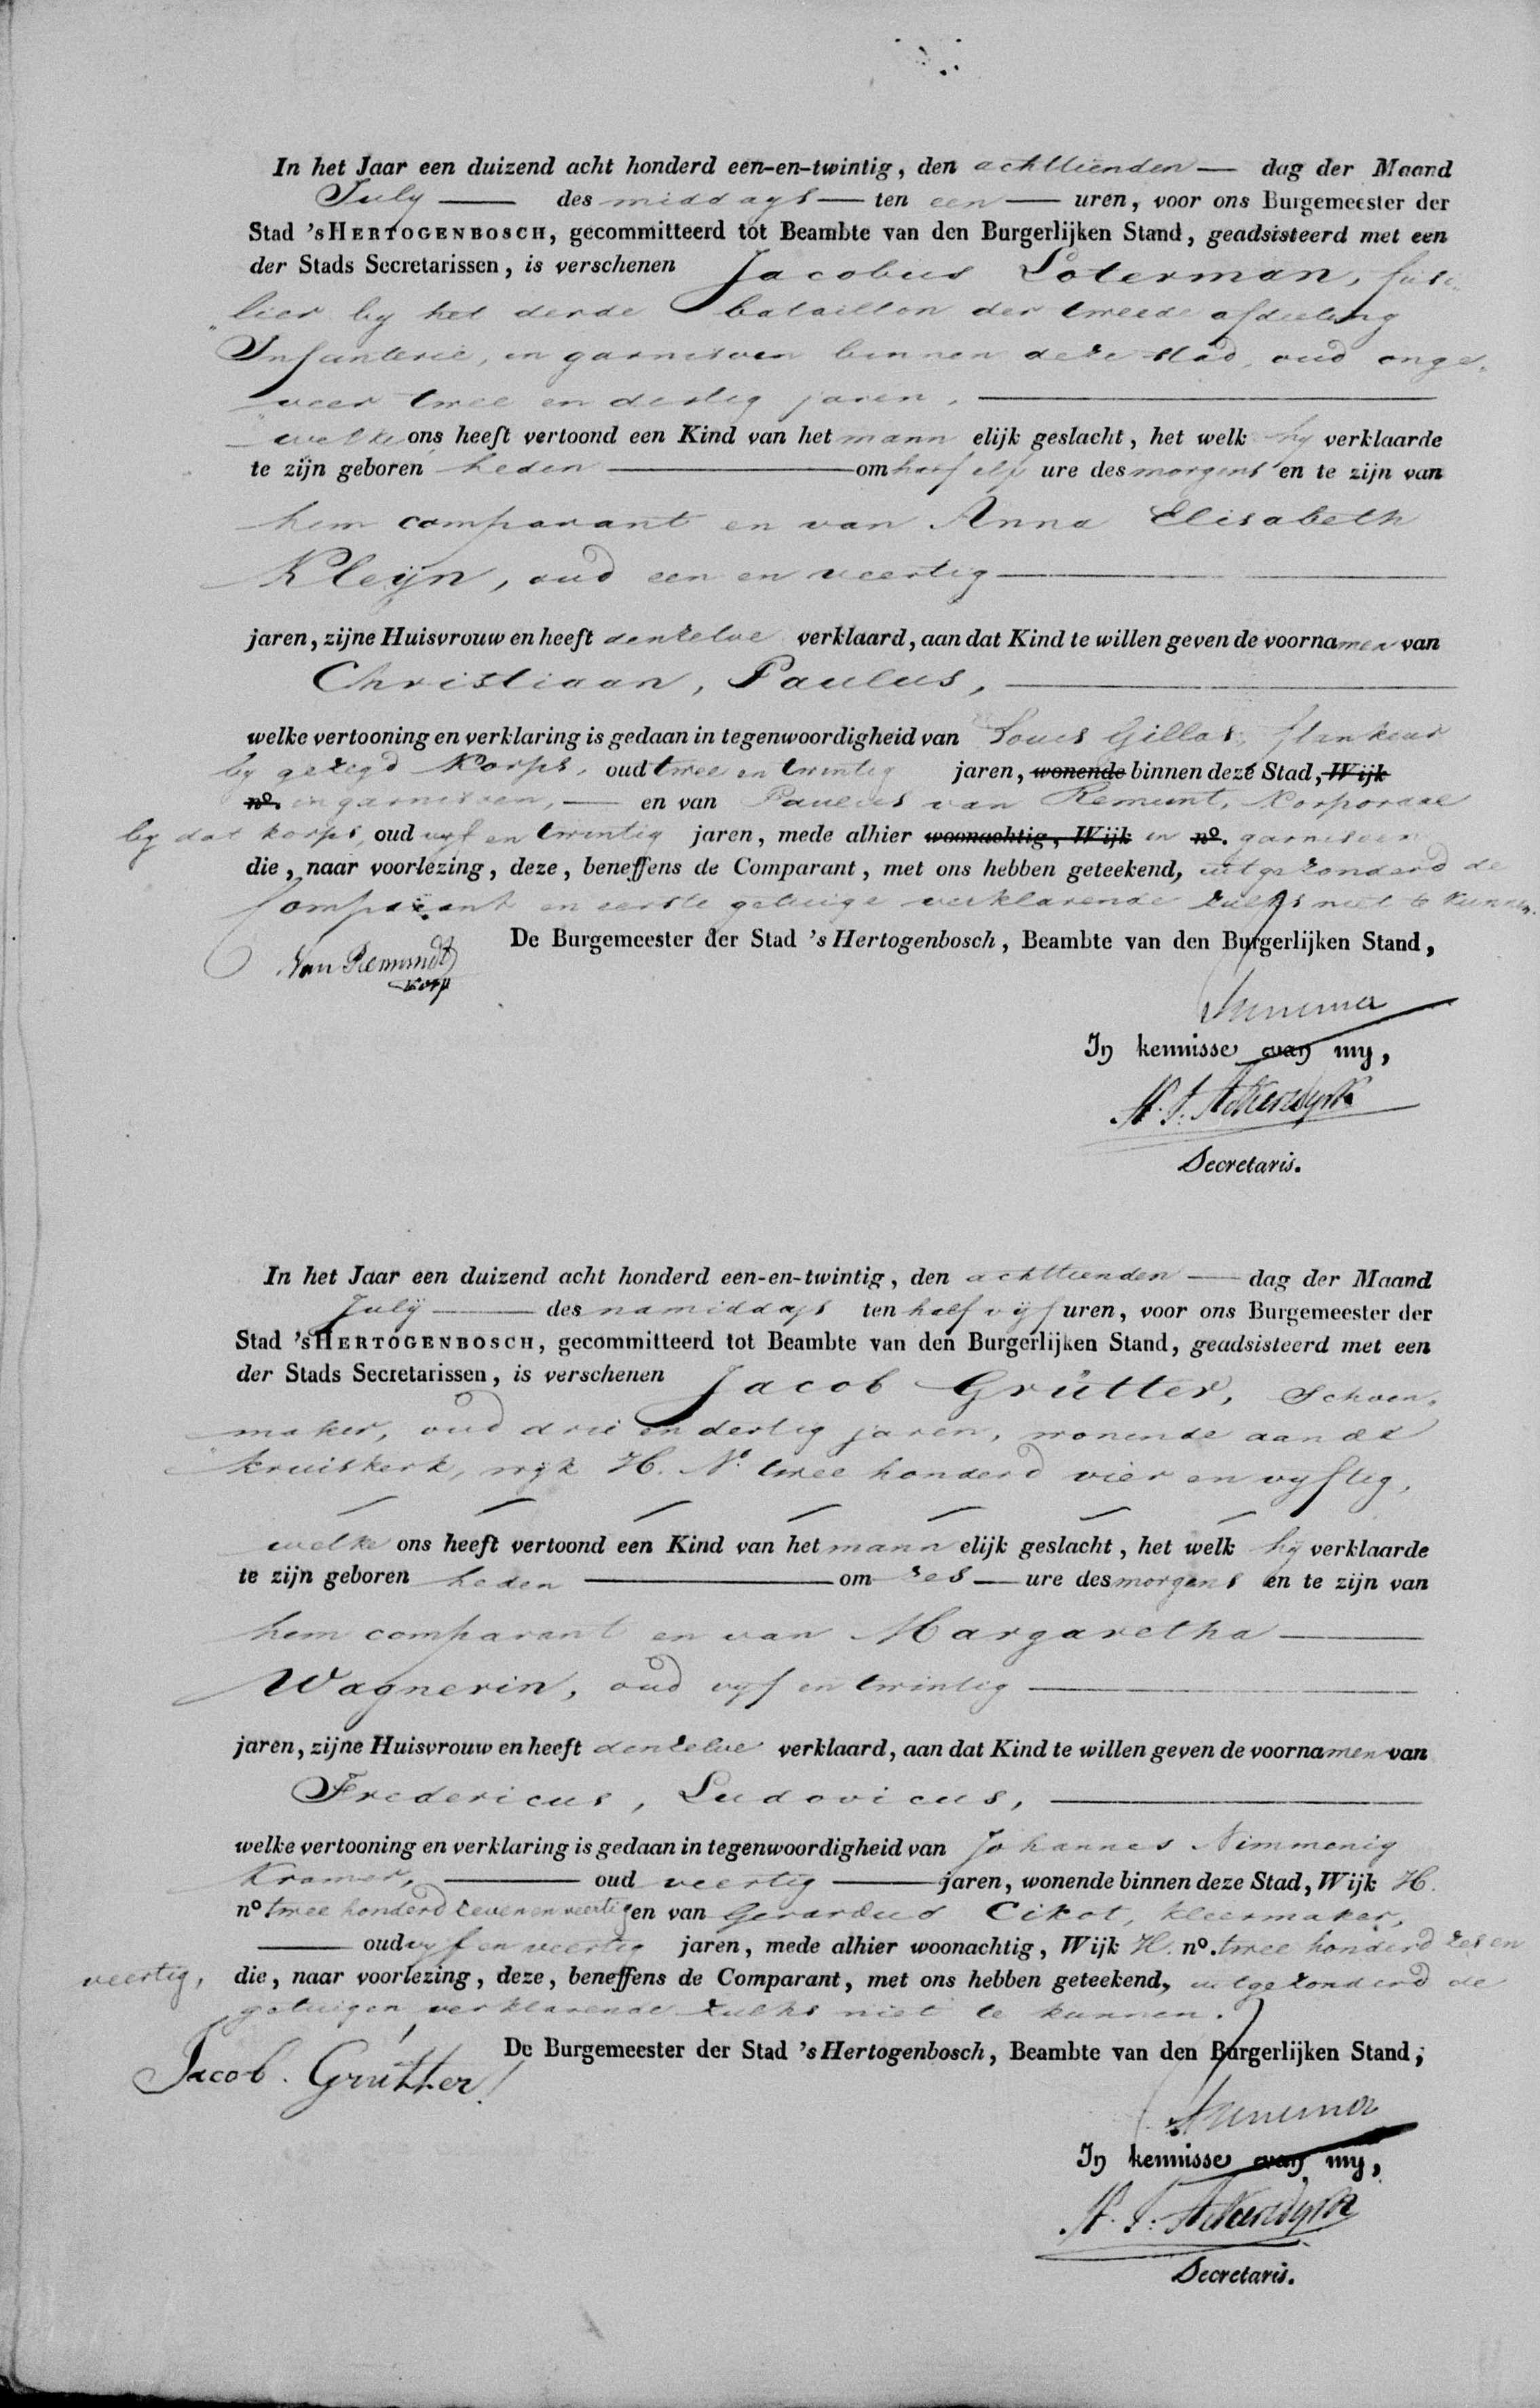 In het Jaar een duizend acht honderd een-en-twintig, den achttienden — dag der Maand
July — des middags — ten een — uren, voor ons Burgemeester der
Stad 'sHERTOGENBOSCH, gecommitteerd tot Beambte van den Burgerlijken Stand, geadsisteerd met een
der Stads Secretarissen, is verschenen Jacobus Loterman, fuse„
„lier by het derde bataillon der tweede afdeeling
Infanterie, in garnisoen binnen deze stad, oud onge„
„veer twee en dertig jaren, —
welke ons heeft vertoond een Kind van het mannelijk geslacht, het welk hy verklaarde
te zijn geboren heden — om half elf ure des morgens en te zijn van
hem comparant en van Anna Elisabeth
Kleÿn, oud een en veertig —
jaren, zijne Huisvrouw en heeft denzelve verklaard, aan dat Kind te willen geven de voornamen van
Christiaan, Paulus, —
welke vertooning en verklaring is gedaan in tegenwoordigheid van Louis Gillos, flankeur
by gezegd Korps, oud twee en twintig jaren, wonende binnen deze Stad, Wijk
no. in garnisoen, — en van Paulus van Remunt, Korporaal
by dat korps, oud vyf en twintig jaren, mede alhier woonachtig, Wijk in no. garnisoen
die, naar voorlezing, deze, beneffens de Comparant, met ons hebben geteekend, uitgezonderd de
Comparant en eerste getuige verklarende zulks niet te kunnen.
De Burgemeester der Stad 's Hertogenbosch, Beambte van den Burgerlijken Stand,
Van Remundt
Korp
In kennisse van my,
Secretaris.
In het Jaar een duizend acht honderd een-en-twintig, den achttienden — dag der Maand
Julÿ — des namiddags ten half vijf uren, voor ons Burgemeester der
Stad 'sHERTOGENBOSCH, gecommitteerd tot Beambte van den Burgerlijken Stand, geadsisteerd met een
der Stads Secretarissen, is verschenen Jacob Grütter, Schoen„
maker, oud drie en dertig jaren, wonende aan de
kruiskerk, wyk H. No. twee honderd vier en vyftig,
welke ons heeft vertoond een Kind van het mannelijk geslacht, het welk hÿ verklaarde
te zijn geboren heden — om zes — ure des morgens en te zijn van
hem comparant en van Margaretha —
Wagnerin, oud vyf en twintig —
jaren, zijne Huisvrouw en heeft denzelve verklaard, aan dat Kind te willen geven de voornamen van
Fredericus, Ludovicus, —
welke vertooning en verklaring is gedaan in tegenwoordigheid van Johannes Nimmenig
Kramer, — oud veertig — jaren, wonende binnen deze Stad, Wijk H.
no twee honderd zeven en veertig en van Gerardus Cikot, kleermaker,
— oud vyf en veertig jaren, mede alhier woonachtig, Wijk H. no. twee honderd zes en
veertig, die, naar voorlezing, deze, beneffens de Comparant, met ons hebben geteekend, uitgezonderd de
getuigen verklarende zulks niet te kunnen.
De Burgemeester der Stad 's Hertogenbosch, Beambte van den Burgerlijken Stand,
Jacob. Grütter
In kennisse van my,
Secretaris.